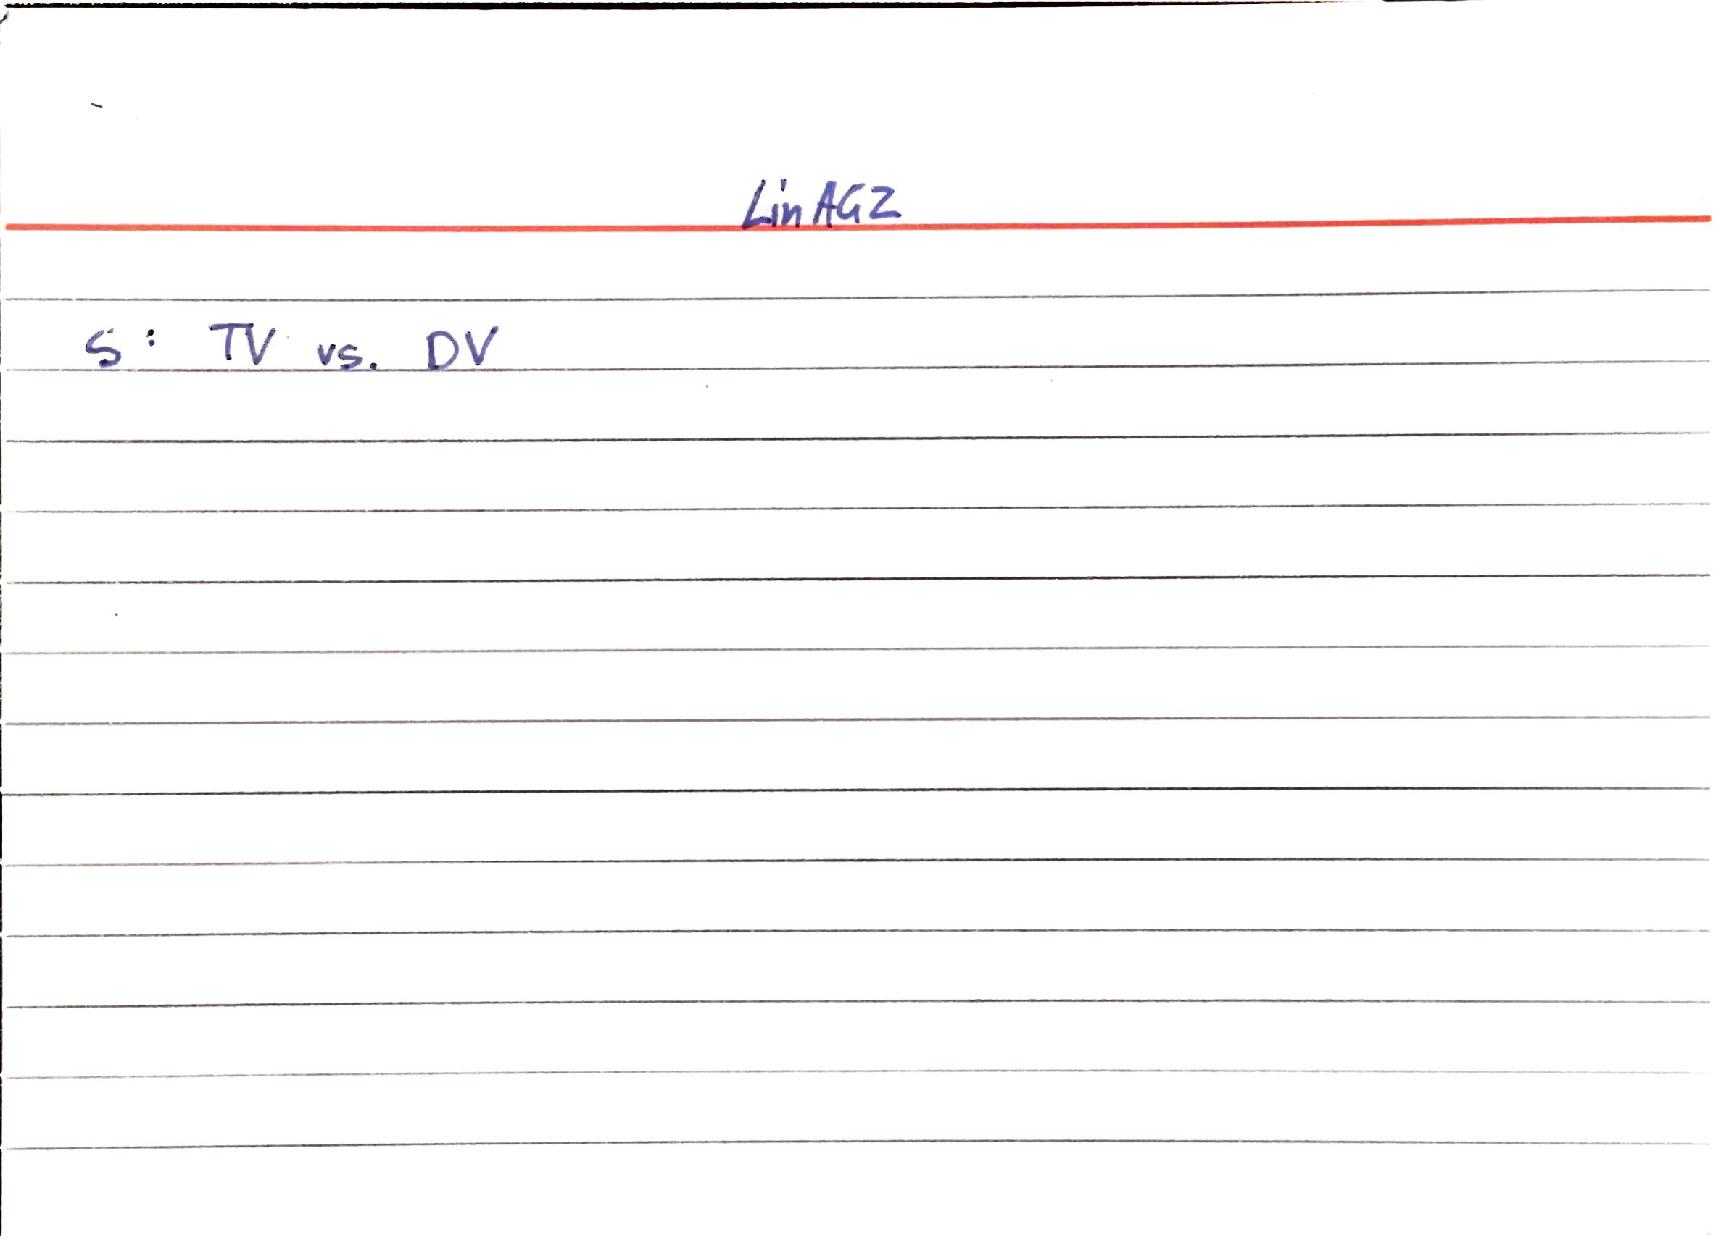 LinAG2
S: TV vs. DV